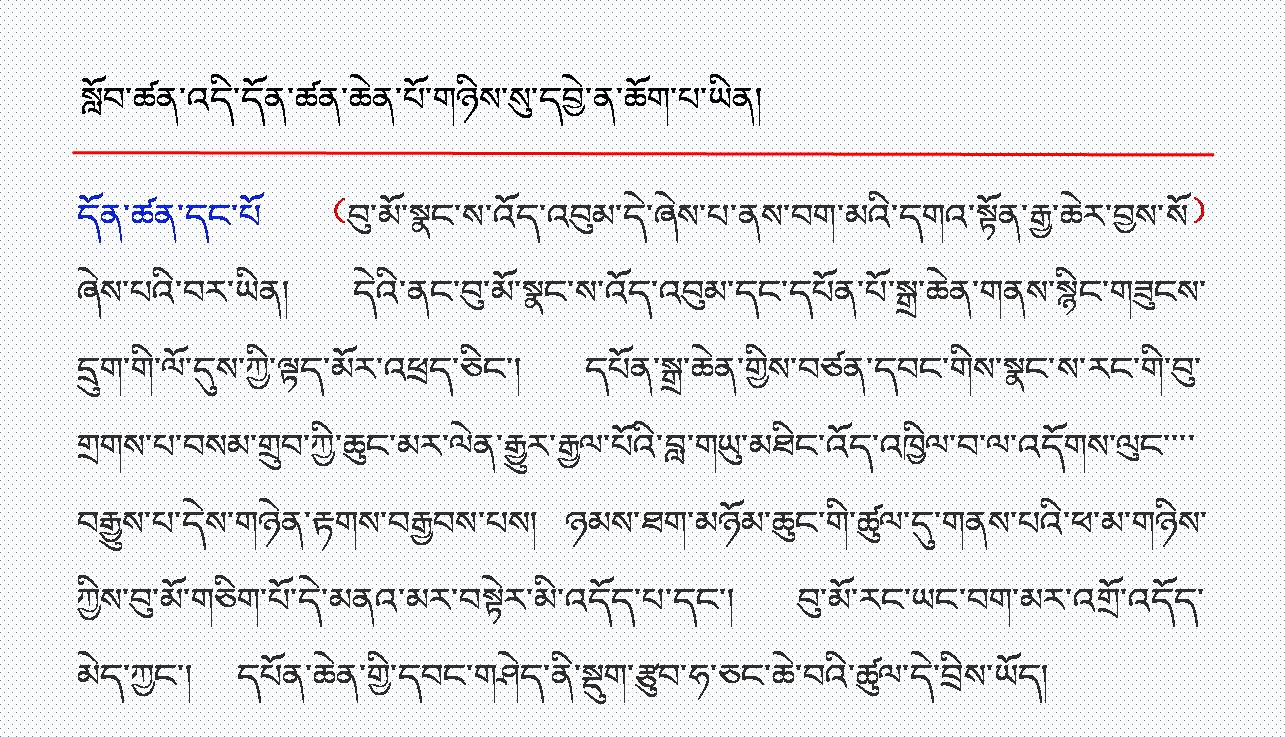 སློབ་ཚན་འདི་དོན་ཚན་ཆེན་པོ་གཉིས་སུ་དབྱེ་ན་ཆོག་པ་ཡིན།
དོན་ཚན་དང་པོ (བུ་མོ་སྣང་ས་འོད་འབུམ་དེ་ཞེས་པ་ནས་བག་མའི་དགའ་སྟོན་རྒྱ་ཆེར་བྱས་སོ)
ཞེས་པའི་བར་ཡིན། དེའི་ནང་བུ་མོ་སྣང་ས་འོད་འབུམ་དང་དཔོན་པོ་སྒྲ་ཆེན་གནས་སྙིང་གཟུངས་
དྲུག་གི་ལོ་དུས་ཀྱི་ལྟད་མོར་འཕྲད་ཅིང་། དཔོན་སྒྲ་ཆེན་གྱིས་བཙན་དབང་གིས་སྣང་ས་རང་གི་བུ་
གྲགས་པ་བསམ་གྲུབ་ཀྱི་ཆུང་མར་ལེན་རྒྱུར་རྒྱལ་པོའི་བླ་གཡུ་མཐིང་འོད་འཁྱིལ་བ་ལ་འདོགས་ལུང་་་་
བརྒྱུས་པ་དེས་གཉེན་རྟགས་བརྒྱབས་པས། ཉམས་ཐག་མཉོམ་ཆུང་གི་ཚུལ་དུ་གནས་པའི་ཕ་མ་གཉིས་
ཀྱིས་བུ་མོ་གཅིག་པོ་དེ་མནའ་མར་བསྟེར་མི་འདོད་པ་དང་། བུ་མོ་རང་ཡང་བག་མར་འགྲོ་འདོད་
མེད་ཀྱང་། དཔོན་ཆེན་གྱི་དབང་གཤེད་ནི་སྡུག་རྩུབ་ཧ་ཅང་ཆེ་བའི་ཚུལ་དེ་བྲིས་ཡོད།